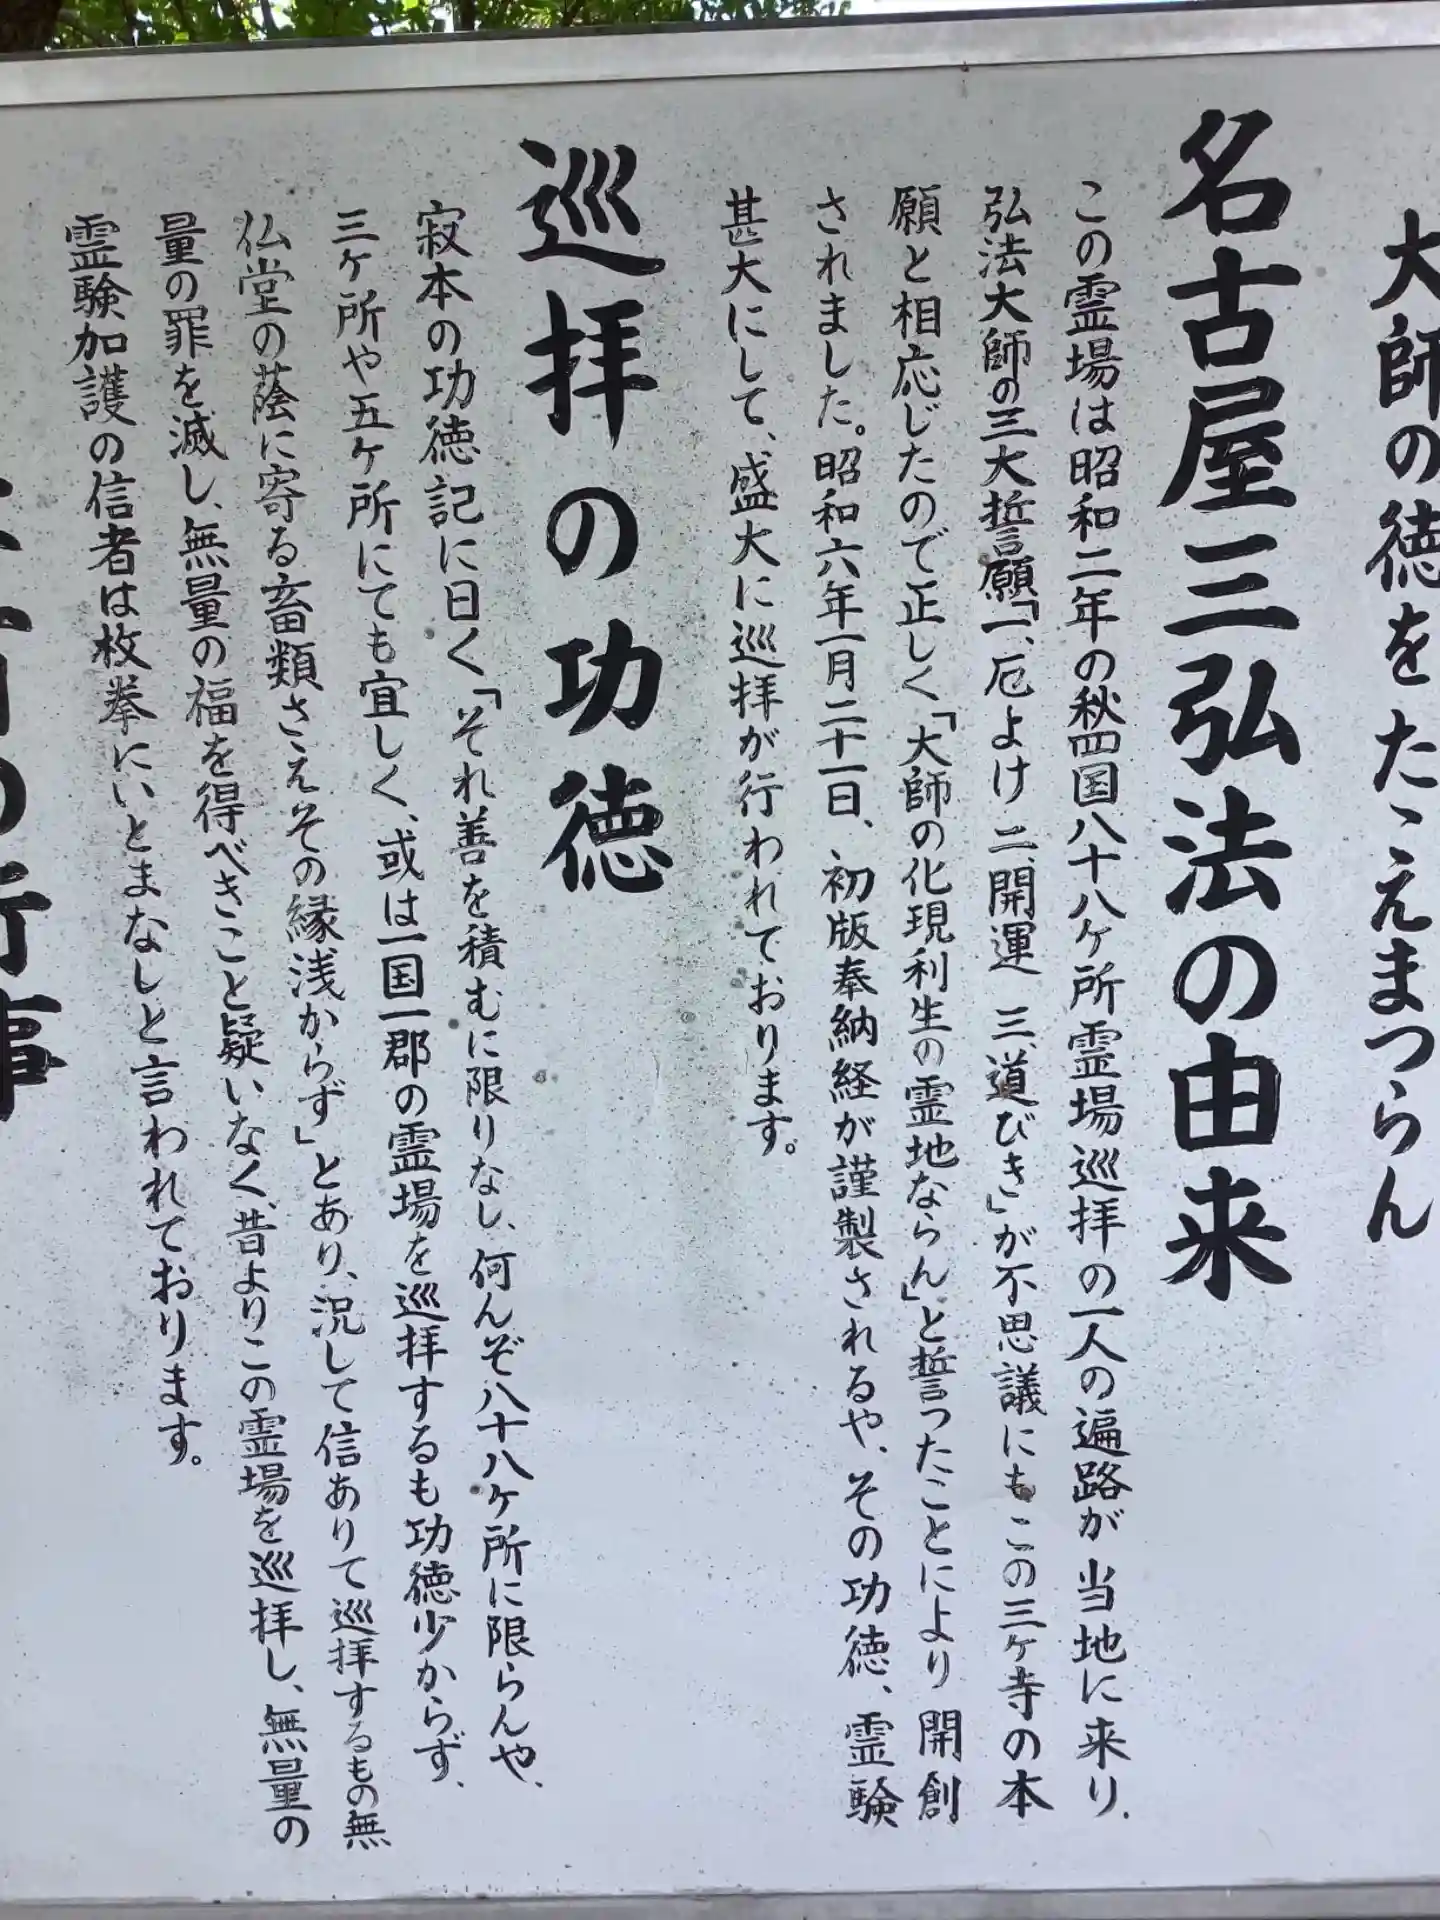 大師の徳をたゝえまつらん
名古屋三弘法の由来
この霊場は昭和二年の秋四国八十八ヶ所霊場巡拝の一人の遍路が当地に来り、
弘法大師の三大誓願「一、厄よけ 二、開運 三、道びき」が不思議にもこの三ヶ寺の本
願と相応じたので正しく「大師の化現利生の霊地ならん」と誓ったことにより開創
されました。昭和六年一月二十一日、初版奉納経が謹製されるや、その功徳、霊験
甚大にして、盛大に巡拝が行われております。
巡拝の功徳
寂本の功徳記に曰く「それ善を積むに限りなし、何んぞ八十八ヶ所に限らんや、
三ヶ所や五ヶ所にても宜しく、或は一国一郡の霊場を巡拝するも功徳少からず、
仏堂の蔭に寄る畜類さえその縁浅からず」とあり、況して信ありて巡拝するもの無
量の罪を滅し、無量の福を得べきこと疑いなく、昔よりこの霊場を巡拝し、無量の
霊験加護の信者は枚挙にいとまなしと言われております。
の行事